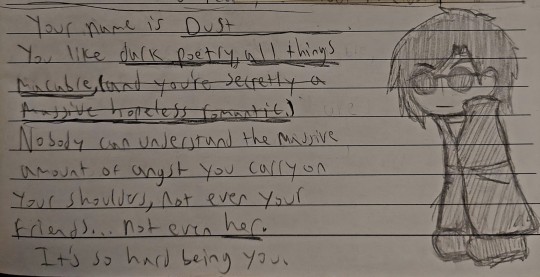 Your name is Dust
You like dark poetry, all things
macabre, (and you're secretly a
massive hopeless romantic.)
Nobody can understand the massive
amount of angst you carry on
your shoulders, not even your
friends... not even her.
It's so hard being you.